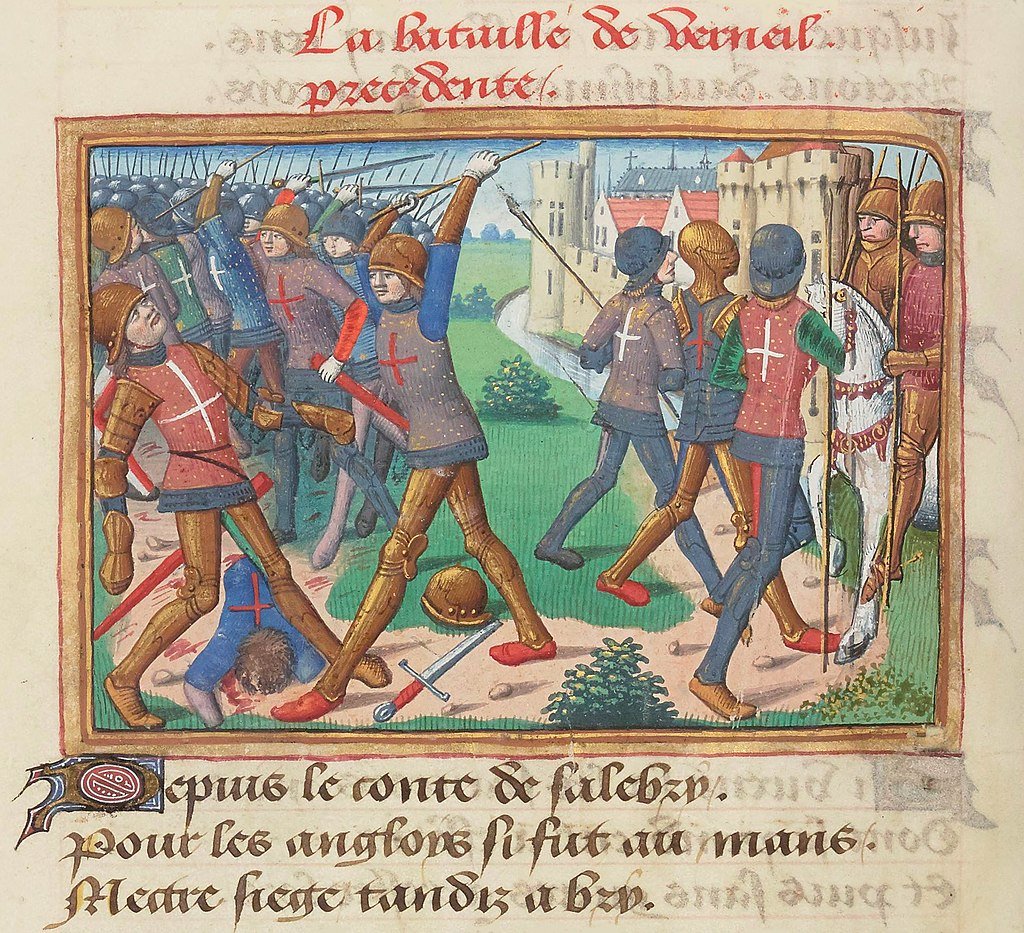 La bataille de verneil.
precedente.
Depuis le conte de salebry.
Pour les angloys si fut au mans.
Mectre siege tandiz a bry.